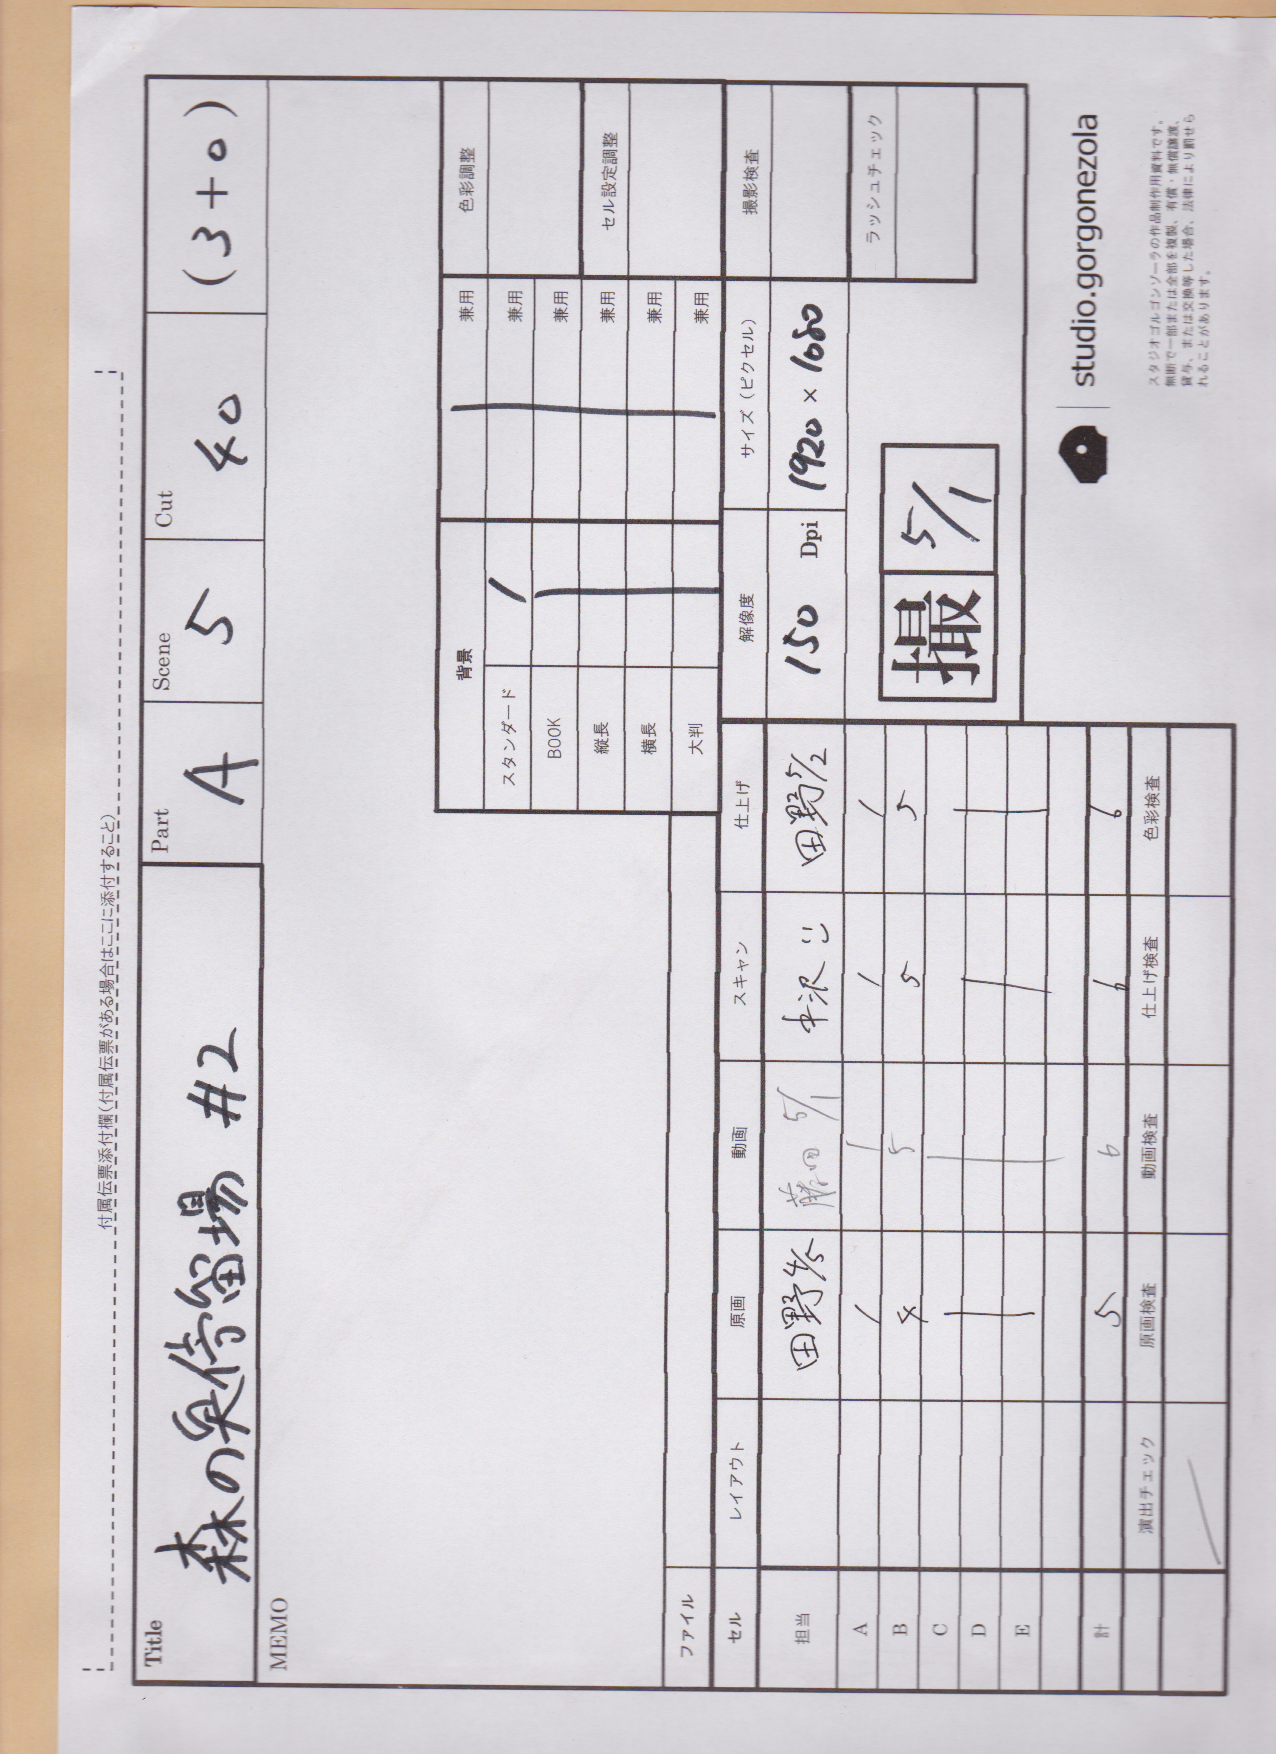 付属伝票添付欄(付属伝票がある場合はここに添付すること)
Title 森の臭停留場 #2
Part A
Scene 5
Cut 40
(3+0)
MEMO
背景
スタンダード 1 兼用
BOOK 兼用
縦長 兼用
横長 兼用
大判 兼用
兼用
色彩調整
セル設定調整
撮影検査
ラッシュチェック
解像度 サイズ(ピクセル)
150 Dpi 1920 × 1080
撮 5/1
ファイル
セル レイアウト 原画 動画 スキャン 仕上げ
担当 田野 4/5 藤田 5/1 田野 5/2
A 1 1 1 1
B 4 5 5 5
C
D
E
計 5 6 6 6
演出チェック 原画検査 動画検査 仕上げ検査 色彩検査
studio.gorgonezola
スタジオゴルゴンゾーラの作品制作用資料です。
無断で一部または全部を複製、有償・無償譲渡、
貸与、または交換等した場合、法律により罰せら
れることがあります。